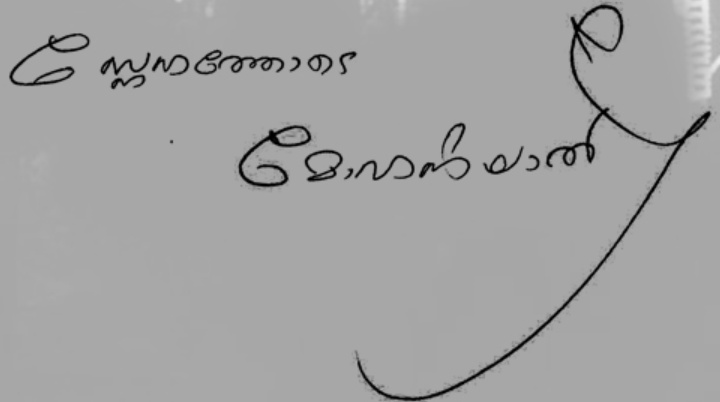 സ്നേഹത്തോടെ
മോഹൻലാൽ